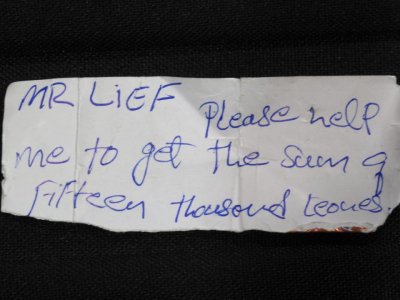 MR LIEF Please help
me to get the sum of
fifteen thousand leones.